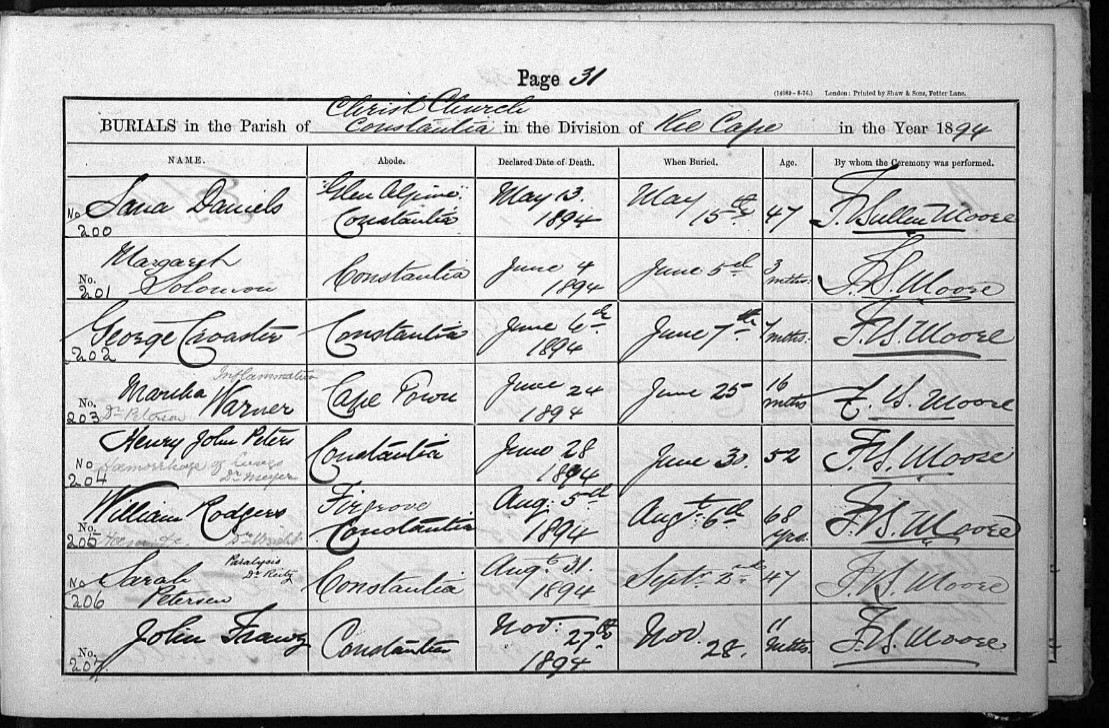 Page 31
(14089-8-76.) London: Printed by Shaw & Sons, Fetter Lane.
Christ Church
BURIALS in the Parish of Constantia in the Division of The Cape in the Year 1894
NAME. Abode. Declared Date of Death. When Buried. Age. By whom the Ceremony was performed.
No 200 Sana Daniels "Glen Alpine" Constantia May 13. 1894 May 15th 47 F. Bullen Moore
No. 201 Margareth Solomon Constantia June 4 1894 June 5th 3 mths. F. B. Moore
202 George Croaster Constantia June 6th 1894 June 7th mths. F. B. Moore
No. 203 Martha Warner Inflammation Dr Petersen Cape Town June 24 1894 June 25 16 mths F. B. Moore
No 204 Henry John Peters Haemorrhage of Lungs Dr Meyer Constantia June 28 1894 June 30. 52 F. B. Moore
No. 205 William Rodgers Dr Wright Firgrove Constantia Aug: 5th 1894 Augt. 6th 68 yrs. F. B. Moore
No 206 Sarah Petersen Paralysis Dr Reitz Constantia Augt 31. 1894 Sept. 2nd 47 F. B. Moore
No. 207 John Franz Constantia Nov. 27th 1894 Nov. 28. 11 mths. F. B. Moore